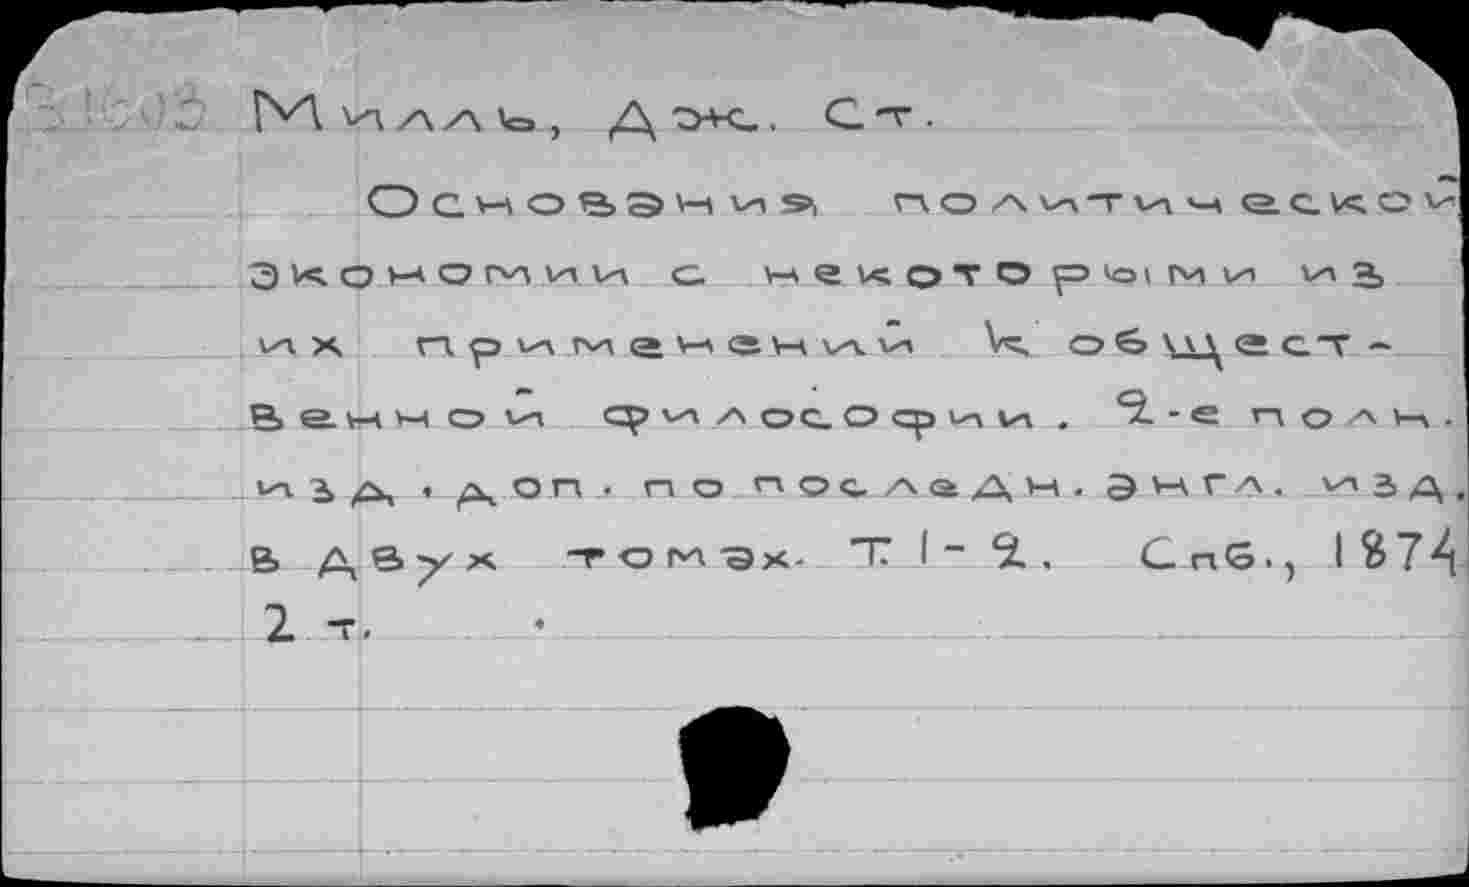 Милль, Дж. Ст.
Основания политической
экономии с некоторыми из
их применений к общест-
венной философии. 2-е полн.
изд. доп. по последн. англ. изд.
в двух томах. Т. 1-2. Спб., 1874
2 т.